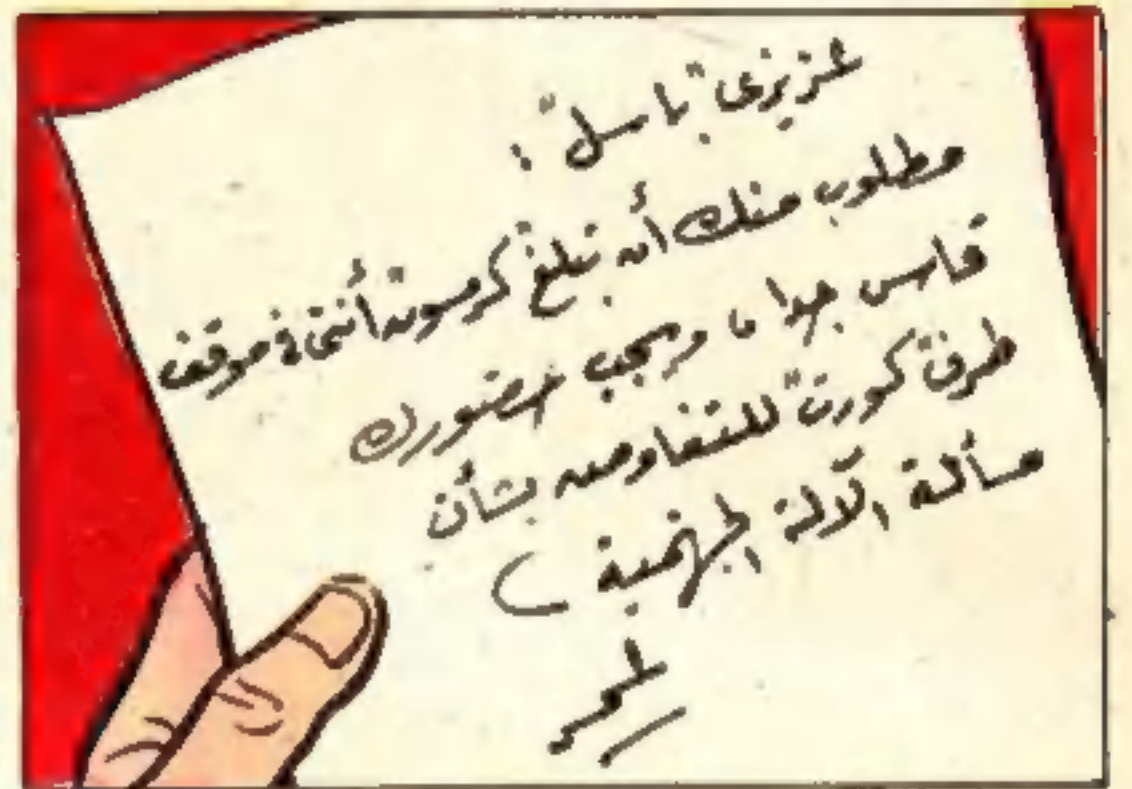 عزيزى "باسل" :
مطلوب منك أن تبلغ "كرمسون" أننى فى موقف
قاس جدا ، ويجب حضورك
طرف "كورت" للتفاوض بشأن
مسألة الآلة الجهنمية